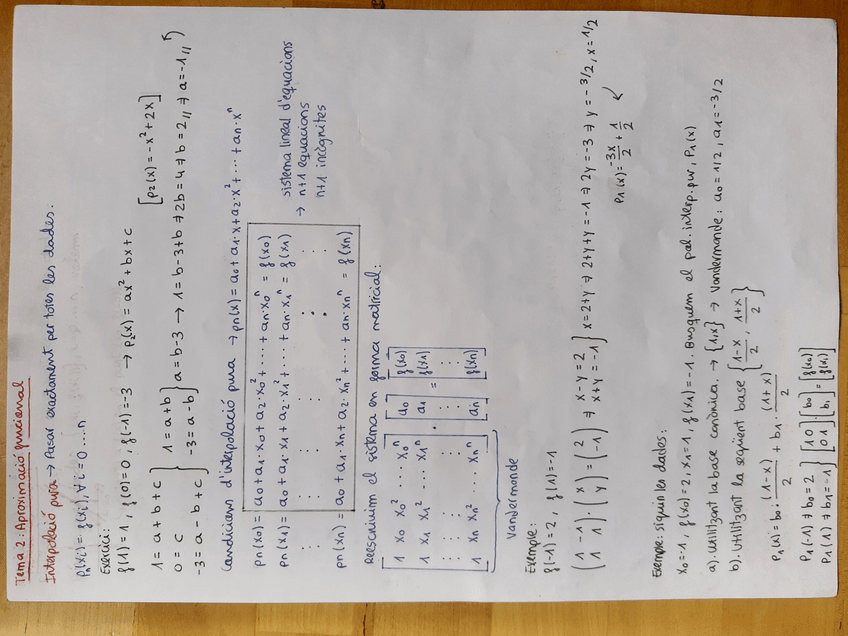 Tema 2: Aproximació funcional
Interpolació pura → Passar exactament per totes les dades.
Pn(xi) = f(xi), ∀i = 0....n
Exercici:
f(1) = 1, f(0) = 0, f(-1) = -3 → P2(x) = ax² + bx + c
[p2(x) = -x² + 2x]
1 = a + b + c } 1 = a + b
0 = c
-3 = a - b + c } -3 = a - b } a = b - 3 → 1 = b - 3 + b → 2b = 4 → b = 2,, → a = -1,,
Condicions d'interpolació pura → pn(x) = a0 + a1·x + a2·x² + ... + an·xⁿ
pn(x0) = a0 + a1·x0 + a2·x0² + ... + an·x0ⁿ = f(x0)
pn(x1) = a0 + a1·x1 + a2·x1² + ... + an·x1ⁿ = f(x1)
pn(xn) = a0 + a1·xn + a2·xn² + ... + an·xnⁿ = f(xn)
sistema lineal d'equacions
→ n+1 equacions
n+1 incògnites
Reescrivim el sistema en forma matricial:
[1 x0 x0² ... x0ⁿ] [a0] [f(x0)]
[1 x1 x1² ... x1ⁿ] [a1] [f(x1)]
[⋮ ⋮ ⋮ ⋮] · [⋮] = [⋮]
[1 xn xn² ... xnⁿ] [an] [f(xn)]
Vandermonde
Exemple:
f(-1) = 2, f(1) = -1
(1 -1) · (x) = (2) ⇒ x - y = 2
(1 1) (y) (-1) x + y = -1 } x = 2 + y ⇒ 2 + y + y = -1 ⇒ 2y = -3 ⇒ y = -3/2, x = 1/2
P1(x) = -3x/2 + 1/2
Exemple: siguin les dades:
x0 = -1, f(x0) = 2, x1 = 1, f(x1) = -1. Busquem el pol. interp. pur, P1(x)
a). Utilitzant la base canònica. → {1,x} → Vandermonde: a0 = 1/2, a1 = -3/2
b). Utilitzant la següent base {1-x/2, 1+x/2}
P1(x) = b0 · (1-x)/2 + b1 · (1+x)/2
P1(-1) → b0 = 2 } [1 0] [b0] = [f(x0)]
P1(1) → b1 = -1 } [0 1] [b1] [f(x1)]